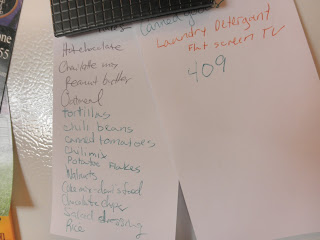 Hot chocolate
Peanut butter
Oatmeal
tortillas
chili beans
canned tomatoes
Chili mix
Potato flakes
Walnuts
Chocolate chips
Salad dressing
Rice
Laundry Detergent
Flat screen TV
409